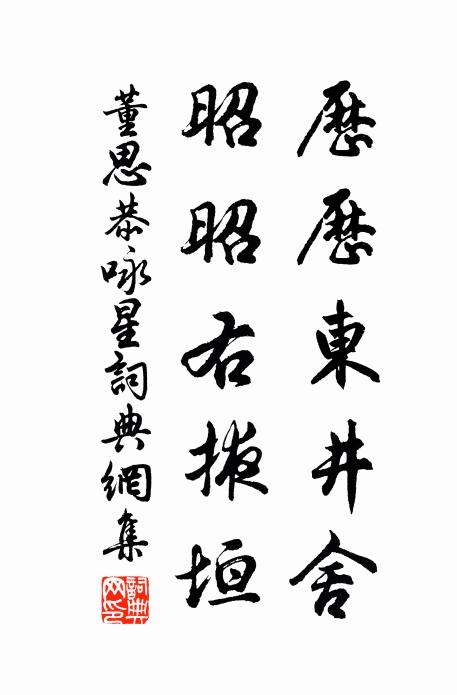 歷歷東井舍
昭昭右掖垣
董思恭咏星詞典網集
詞典網印